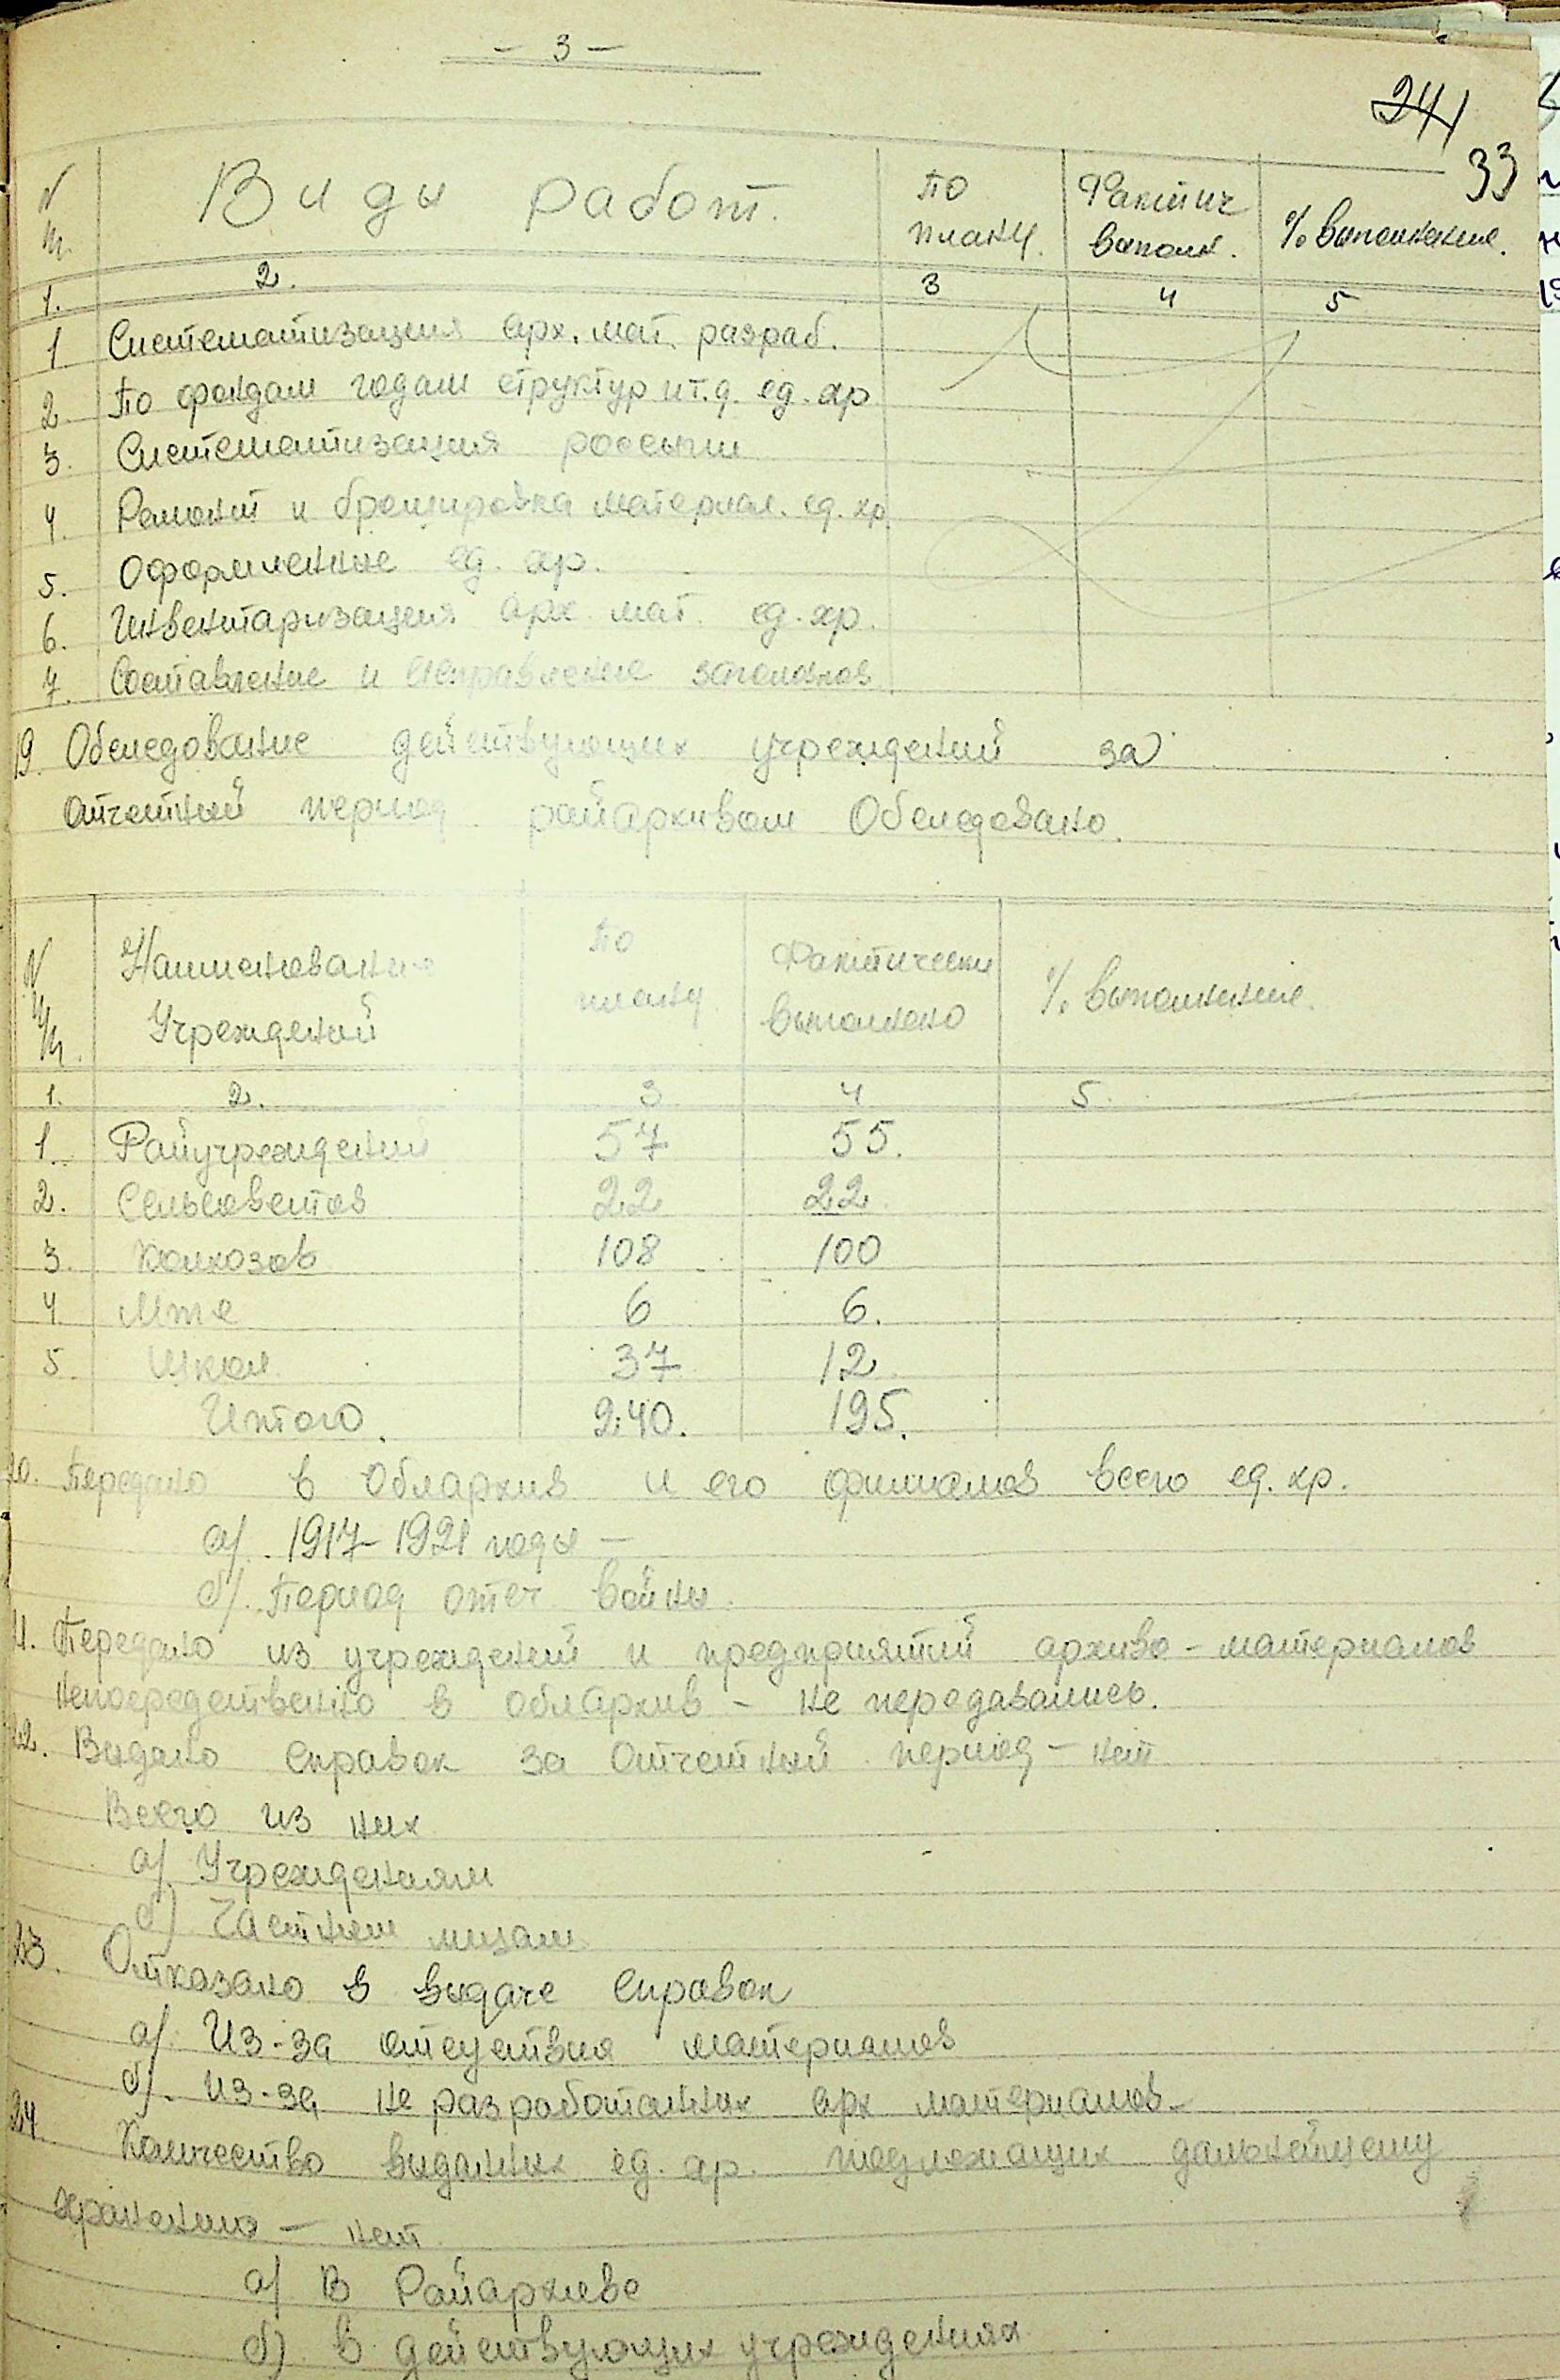 - 3 -
24
33
N п. Виды работ. По плану. Фактич выполн. % выполнение.
1. 2. 3 4 5
1 Систематизация арх. мат. разраб.
2 По фондам годам структур и т.д. ед. хр
3. Систематизация россыпи
4. Ремонт и брошировка материал. ед. хр
5. Оформление ед. хр.
6. Инвентаризация арх. мат. ед. хр.
7. Составление и исправление заголовков
19. Обследование действующих учреждений за
отчетный период райархивом Обследовано.
N п/п. Наименование Учреждений По плану. Фактически выполнено % выполнение.
1. 2. 3 4 5.
1. Райучреждений 57 55.
2. Сельсоветов 22 22.
3. Колхозов 108 100
4 Мтс 6 6.
5. Школ 37 12
Итого. 240. 195.
20. Передано в Облархив и его филиалов всего ед. хр.
а/. 1917-1921 годы —
б/. Период отеч войны.
21. Передано из учреждений и предприятий архиво-материалов
непосредственно в облархив - не передавались.
22. Выдано справок за отчетный период - нет
Всего из них
а/ Учреждениям
б) Частным лицам
23. Отказано в выдаче справок
а/. Из-за отсуствия материалов
б/. из-за не разработанных арх материалов-
24 Количество выданных ед. хр. подлежащих дальнейшему
хранению - нет
а/ В Райархиве
б) в действующих учреждениях